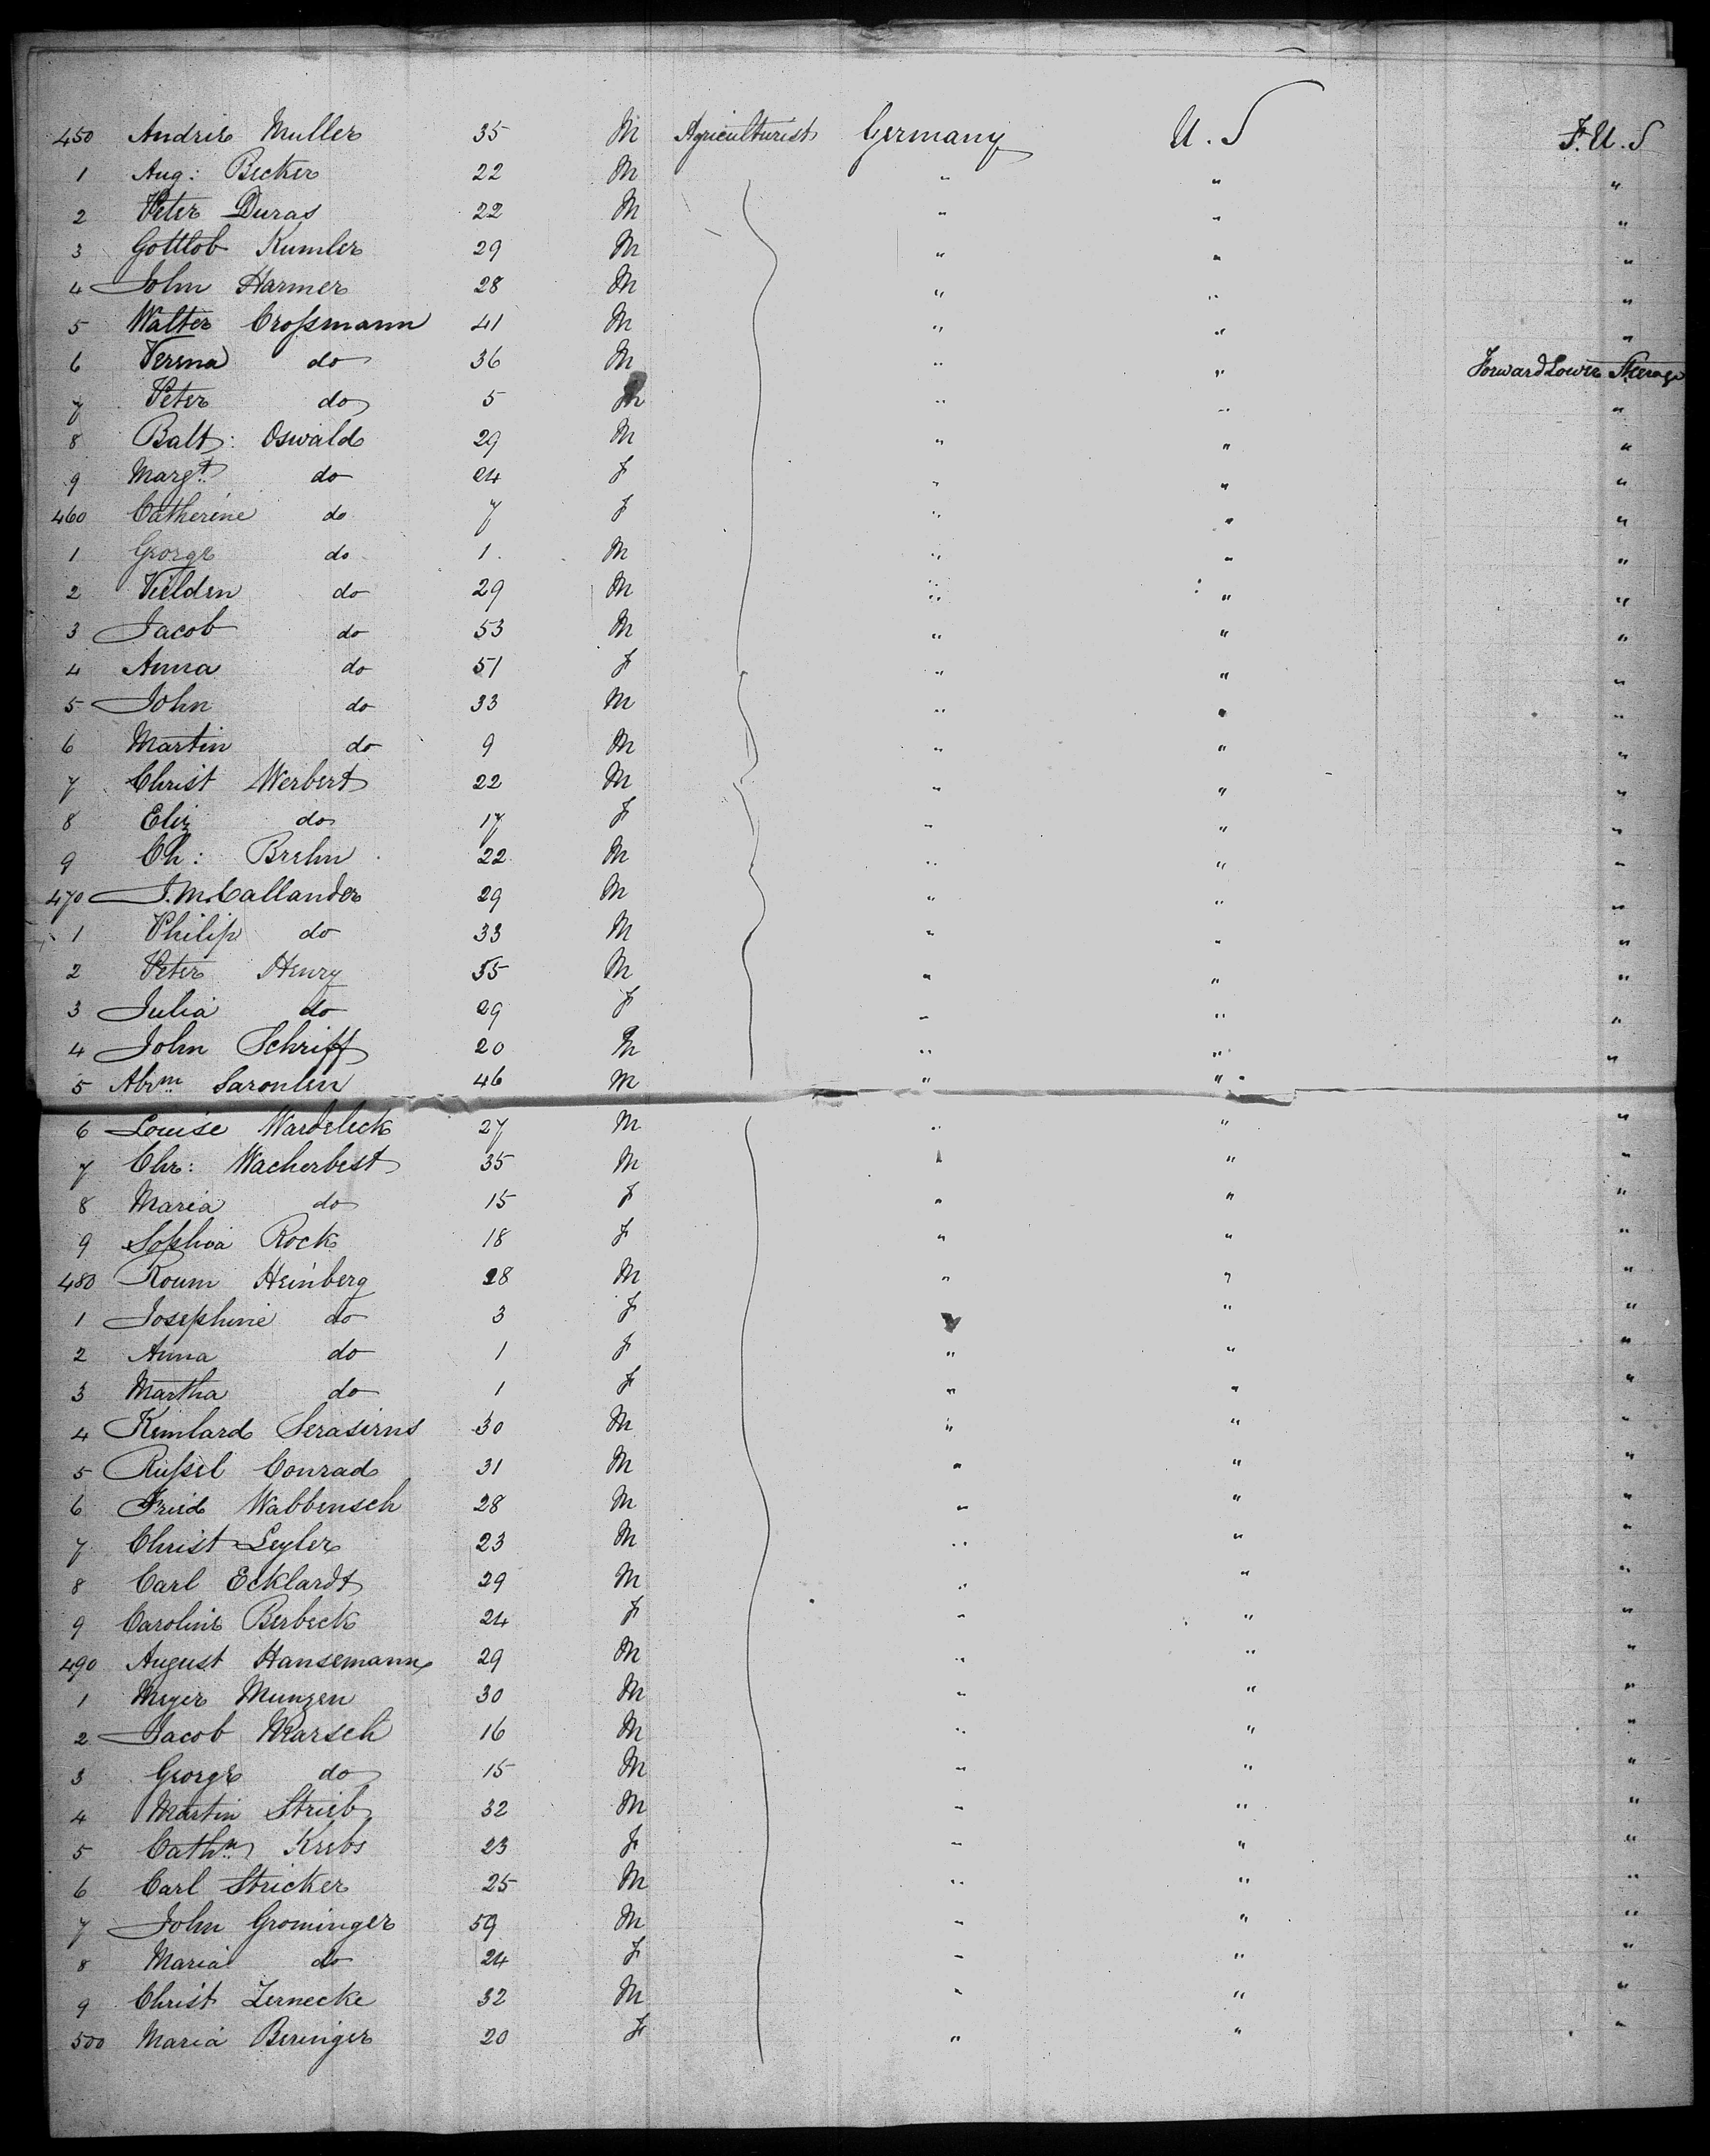 450 Andrie Muller 35 M Agriculturist Germany U.S F.U.S
1 Aug: Becker 22 M " " "
2 Peter Duras 22 M " " "
3 Gottlob Kumler 29 M " " "
4 John Harmer 28 M " " "
5 Walter Croſsmann 41 M " " "
6 Verena do 36 M " " Forward Lower Steerage
7 Peter do 5 M " " "
8 Balt: Oswald 29 M " " "
9 Margt do 24 F " " "
460 Catherine do 7 F " " "
1 George do 1 M " " "
2 do 29 M " " "
3 Jacob do 53 M " " "
4 Anna do 51 F " " "
5 John do 33 M " " "
6 Martin do 9 M " " "
7 Christ Werbert 22 M " " "
8 Eliz do 17 F " " "
9 Ch: Brehn 22 M " " "
470 J.M. Callander 29 M " " "
1 Philip do 33 M " " "
2 Peter Henry 55 M " " "
3 Julia do 29 F " " "
4 John Schriff 20 M " " "
5 Abrm Saronlin 46 M " "
6 Louise Wardelick 27 M " " "
7 Chr: Wacherbest 35 M " " "
8 Maria do 15 F " " "
9 Sophia Rock 18 F " " "
480 Roum Heinberg 28 M " " "
1 Josephine do 3 F " "
2 Anna do 1 F " " "
3 Martha do 1 F " " "
4 Kemlard Serasirns 30 M " " "
5 Ruſsel Conrad 31 M " " "
6 Fried Wabbensch 28 M " " "
7 Christ Leyler 23 M " " "
8 Carl Ecklardt 29 M " " "
9 Caroline Berbeck 24 F " " "
490 August Hansemann 29 M " " "
1 Meyer Munzen 30 M " " "
2 Jacob Marsch 16 M " " "
3 George do 15 M " " "
4 Martin Strieb 32 M " " "
5 Cathn Krebs 23 F " " "
6 Carl Stricker 25 M " " "
7 John Grominger 59 M " " "
8 Maria do 24 F " " "
9 Christ Zernecke 32 M " " "
500 Maria Beringer 20 F " " "